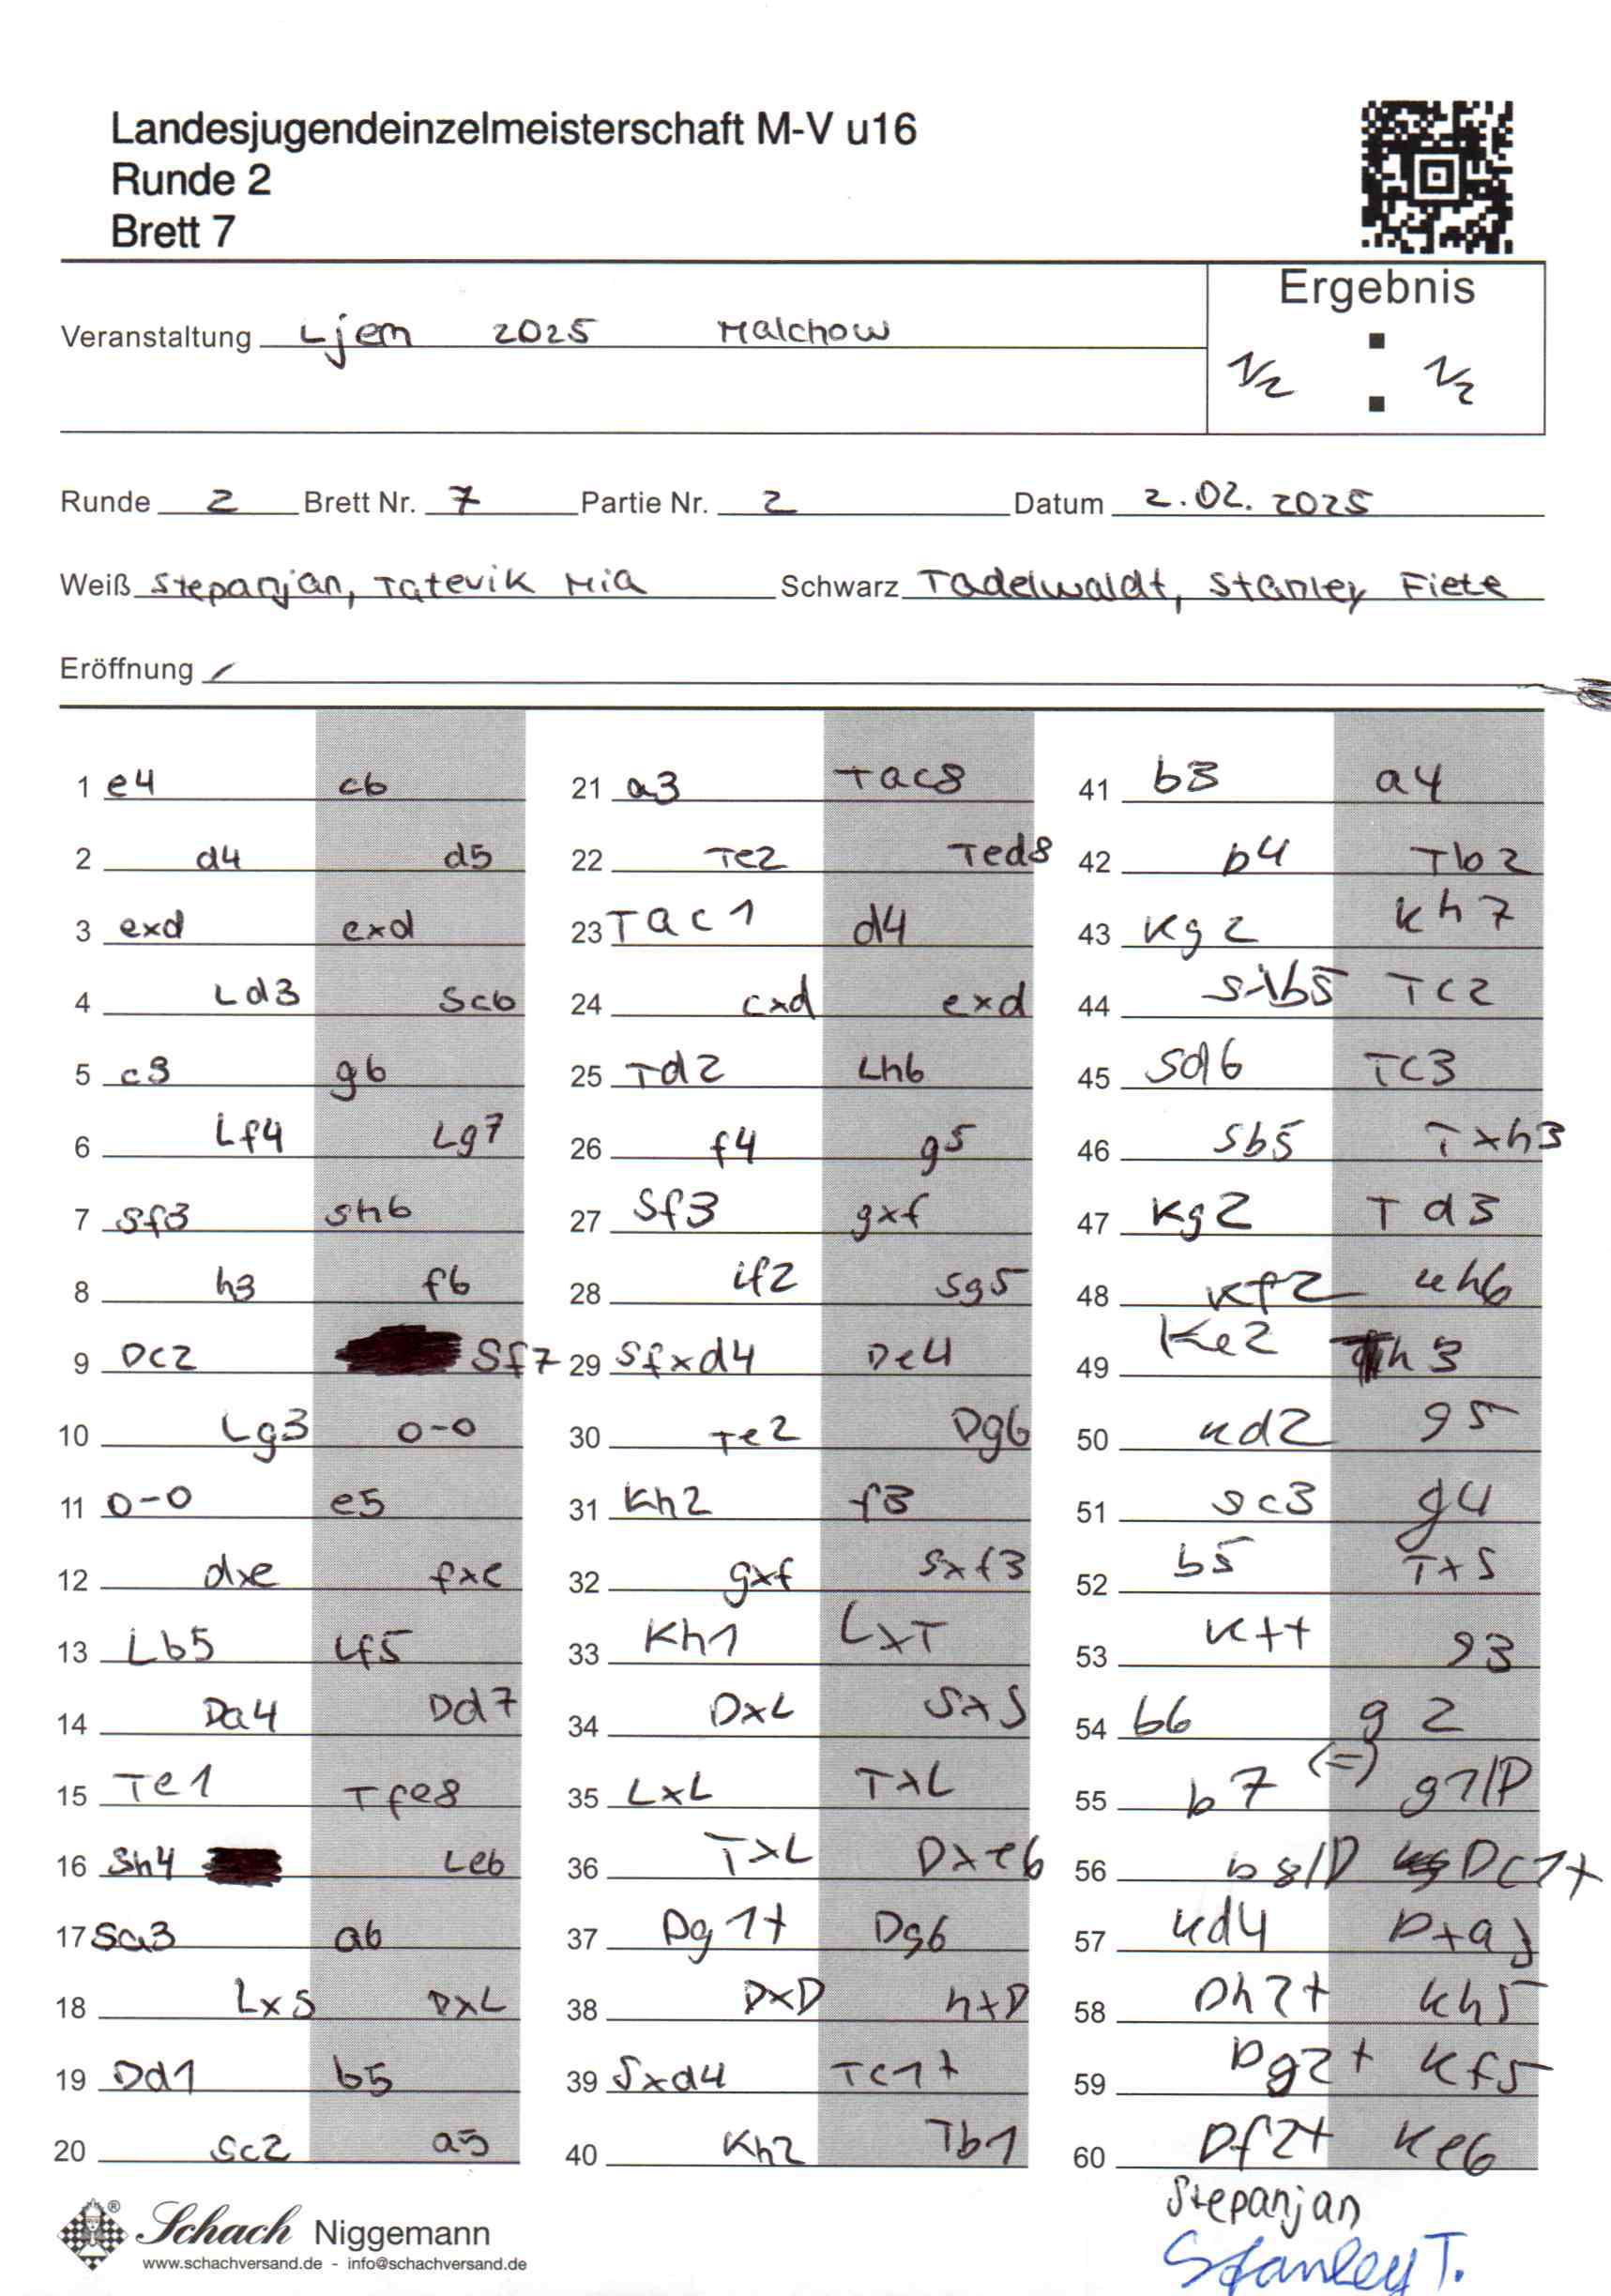 Landesjugendeinzelmeisterschaft M-V u16
Runde 2
Brett 7
Ergebnis
Veranstaltung Ljem 2025 Malchow
1/2 : 1/2
Runde 2 Brett Nr. 7 Partie Nr. 2 Datum 2.02.2025
Weiß Stepanjan, Tatevik Mia Schwarz Tadelwaldt, Stanley Fiete
Eröffnung /
1 e4 c6
2 d4 d5
3 exd exd
4 Ld3 Sc6
5 c3 g6
6 Lf4 Lg7
7 Sf3 Sh6
8 h3 f6
9 Dc2 Sf7
10 Lg3 0-0
11 0-0 e5
12 dxe fxe
13 Lb5 Lf5
14 Da4 Dd7
15 Te1 Tfe8
16 Sh4 Le6
17 Sa3 a6
18 LxS DxL
19 Dd1 b5
20 Sc2 a5
21 a3 Tac8
22 Te2 Ted8
23 Tac1 d4
24 cxd exd
25 Td2 Lh6
26 f4 g5
27 Sf3 gxf
28 Lf2 Sg5
29 Sfxd4 De4
30 Te2 Dg6
31 Kh2 f3
32 gxf Sxf3
33 Kh1 LxT
34 DxL SxS
35 LxL TxL
36 TxL Dxe6
37 Dg1+ Dg6
38 DxD hxD
39 Sxd4 Tc1+
40 Kh2 Tb1
41 b3 a4
42 b4 Tb2
43 Kg2 Kh7
44 Sxb5 Tc2
45 Sd6 Tc3
46 Sb5 Txh3
47 Kg2 Td3
48 Kf2 Kh6
49 Ke2 Th3
50 Kd2 g5
51 Sc3 g4
52 b5 TxS
53 Kxt g3
54 b6 g2
55 b7 (=) g1/D
56 b8/D Dc1+
57 Kd4 Dxa3
58 Dh2+ Kh5
59 Dg2+ Kf5
60 Df2+ Ke6
Stepanjan
Stanley T.
Schach Niggemann
www.schachversand.de - info@schachversand.de